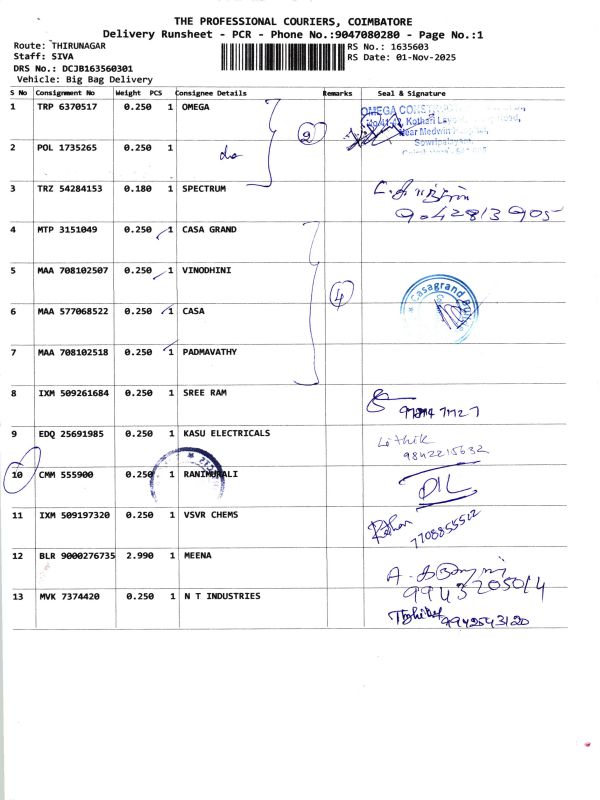 THE PROFESSIONAL COURIERS, COIMBATORE
Delivery Runsheet - PCR - Phone No.:9047080280 - Page No.:1
Route: THIRUNAGAR RS No.: 1635603
Staff: SIVA RS Date: 01-Nov-2025
DRS No.: DCJB163560301
Vehicle: Big Bag Delivery
S No Consignment No Weight PCS Consignee Details Remarks Seal & Signature
1 TRP 6370517 0.250 1 OMEGA
OMEGA
Kothari
Near Medwin
Sowripalayam
2 POL 1735265 0.250 1 do
2
3 TRZ 54284153 0.180 1 SPECTRUM
9042813905
4 MTP 3151049 0.250 1 CASA GRAND
5 MAA 708102507 0.250 1 VINODHINI
4
Casagrand
6 MAA 577068522 0.250 1 CASA
7 MAA 708102518 0.250 1 PADMAVATHY
8 IXM 509261684 0.250 1 SREE RAM
9 EDQ 25691985 0.250 1 KASU ELECTRICALS Lithik
9842215632
10 CMM 555900 0.250 1 RANIMURALI
11 IXM 509197320 0.250 1 VSVR CHEMS
7708855512
12 BLR 9000276735 2.990 1 MEENA
9943205014
13 MVK 7374420 0.250 1 N T INDUSTRIES
9942543120